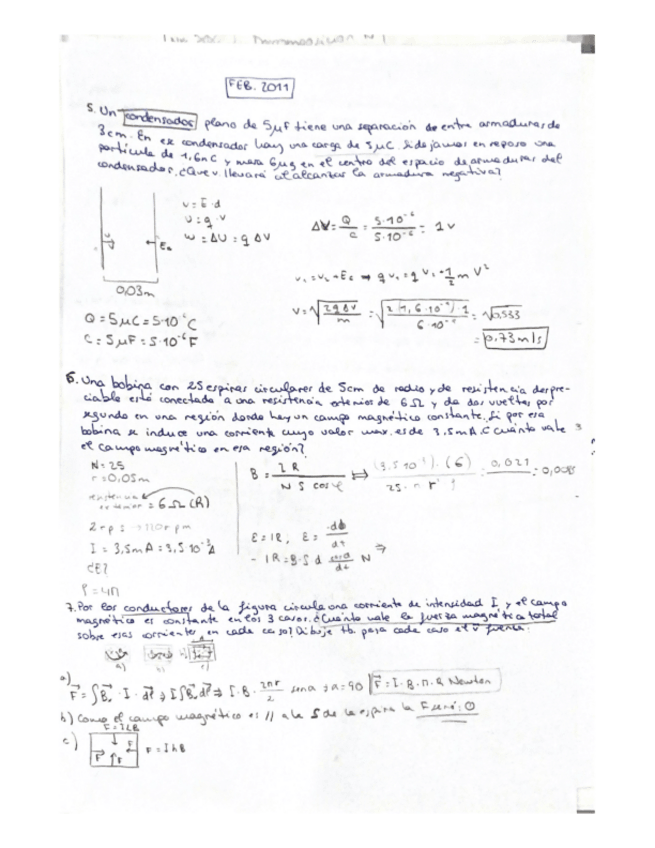 FEB. 2011
5. Un condensador plano de 5μF tiene una separación de entre armaduras de
3cm. En ese condensador hay una carga de 5μC. Si dejamos en reposo una
partícula de 1,6nC y masa 6μg en el centro del espacio de armaduras del
condensador. ¿Que v. llevará al alcanzar la armadura negativa?
v = E·d
U = q·v
W = ΔU = q ΔV
ΔV = Q/C = 5·10⁻⁶/5·10⁻⁶ = 1V
0,03m
Q = 5μC = 5·10⁻⁶C
C = 5μF = 5·10⁻⁶F
= 0,73m/s
6. Una bobina con 25 espiras circulares de 5cm de radio y de resistencia despre-
ciable está conectada a una resistencia exterior de 6Ω y da dos vueltas por
segundo en una región donde hay un campo magnético constante. Si por esa
bobina se induce una corriente cuyo valor max. es de 3,5mA. ¿Cuánto vale
el campo magnético en esa región?
N = 25
r = 0,05m
= 6Ω (R)
I = 3,5mA = 3,5 10⁻³A
B = I R / N S cosφ
ε = IR; ε = -dφ/dt
7. Por los conductores de la figura circula una corriente de intensidad I y el campo
magnético es constante en los 3 casos. ¿Cuánto vale la fuerza magnética total
sobre esas corrientes en cada caso? Dibuje tb. para cada caso el
a) b) c)
a)
F = I·B·π·R Newton
b) Como el campo magnético es // a la S de la espira la F será: 0
c) F = I h B